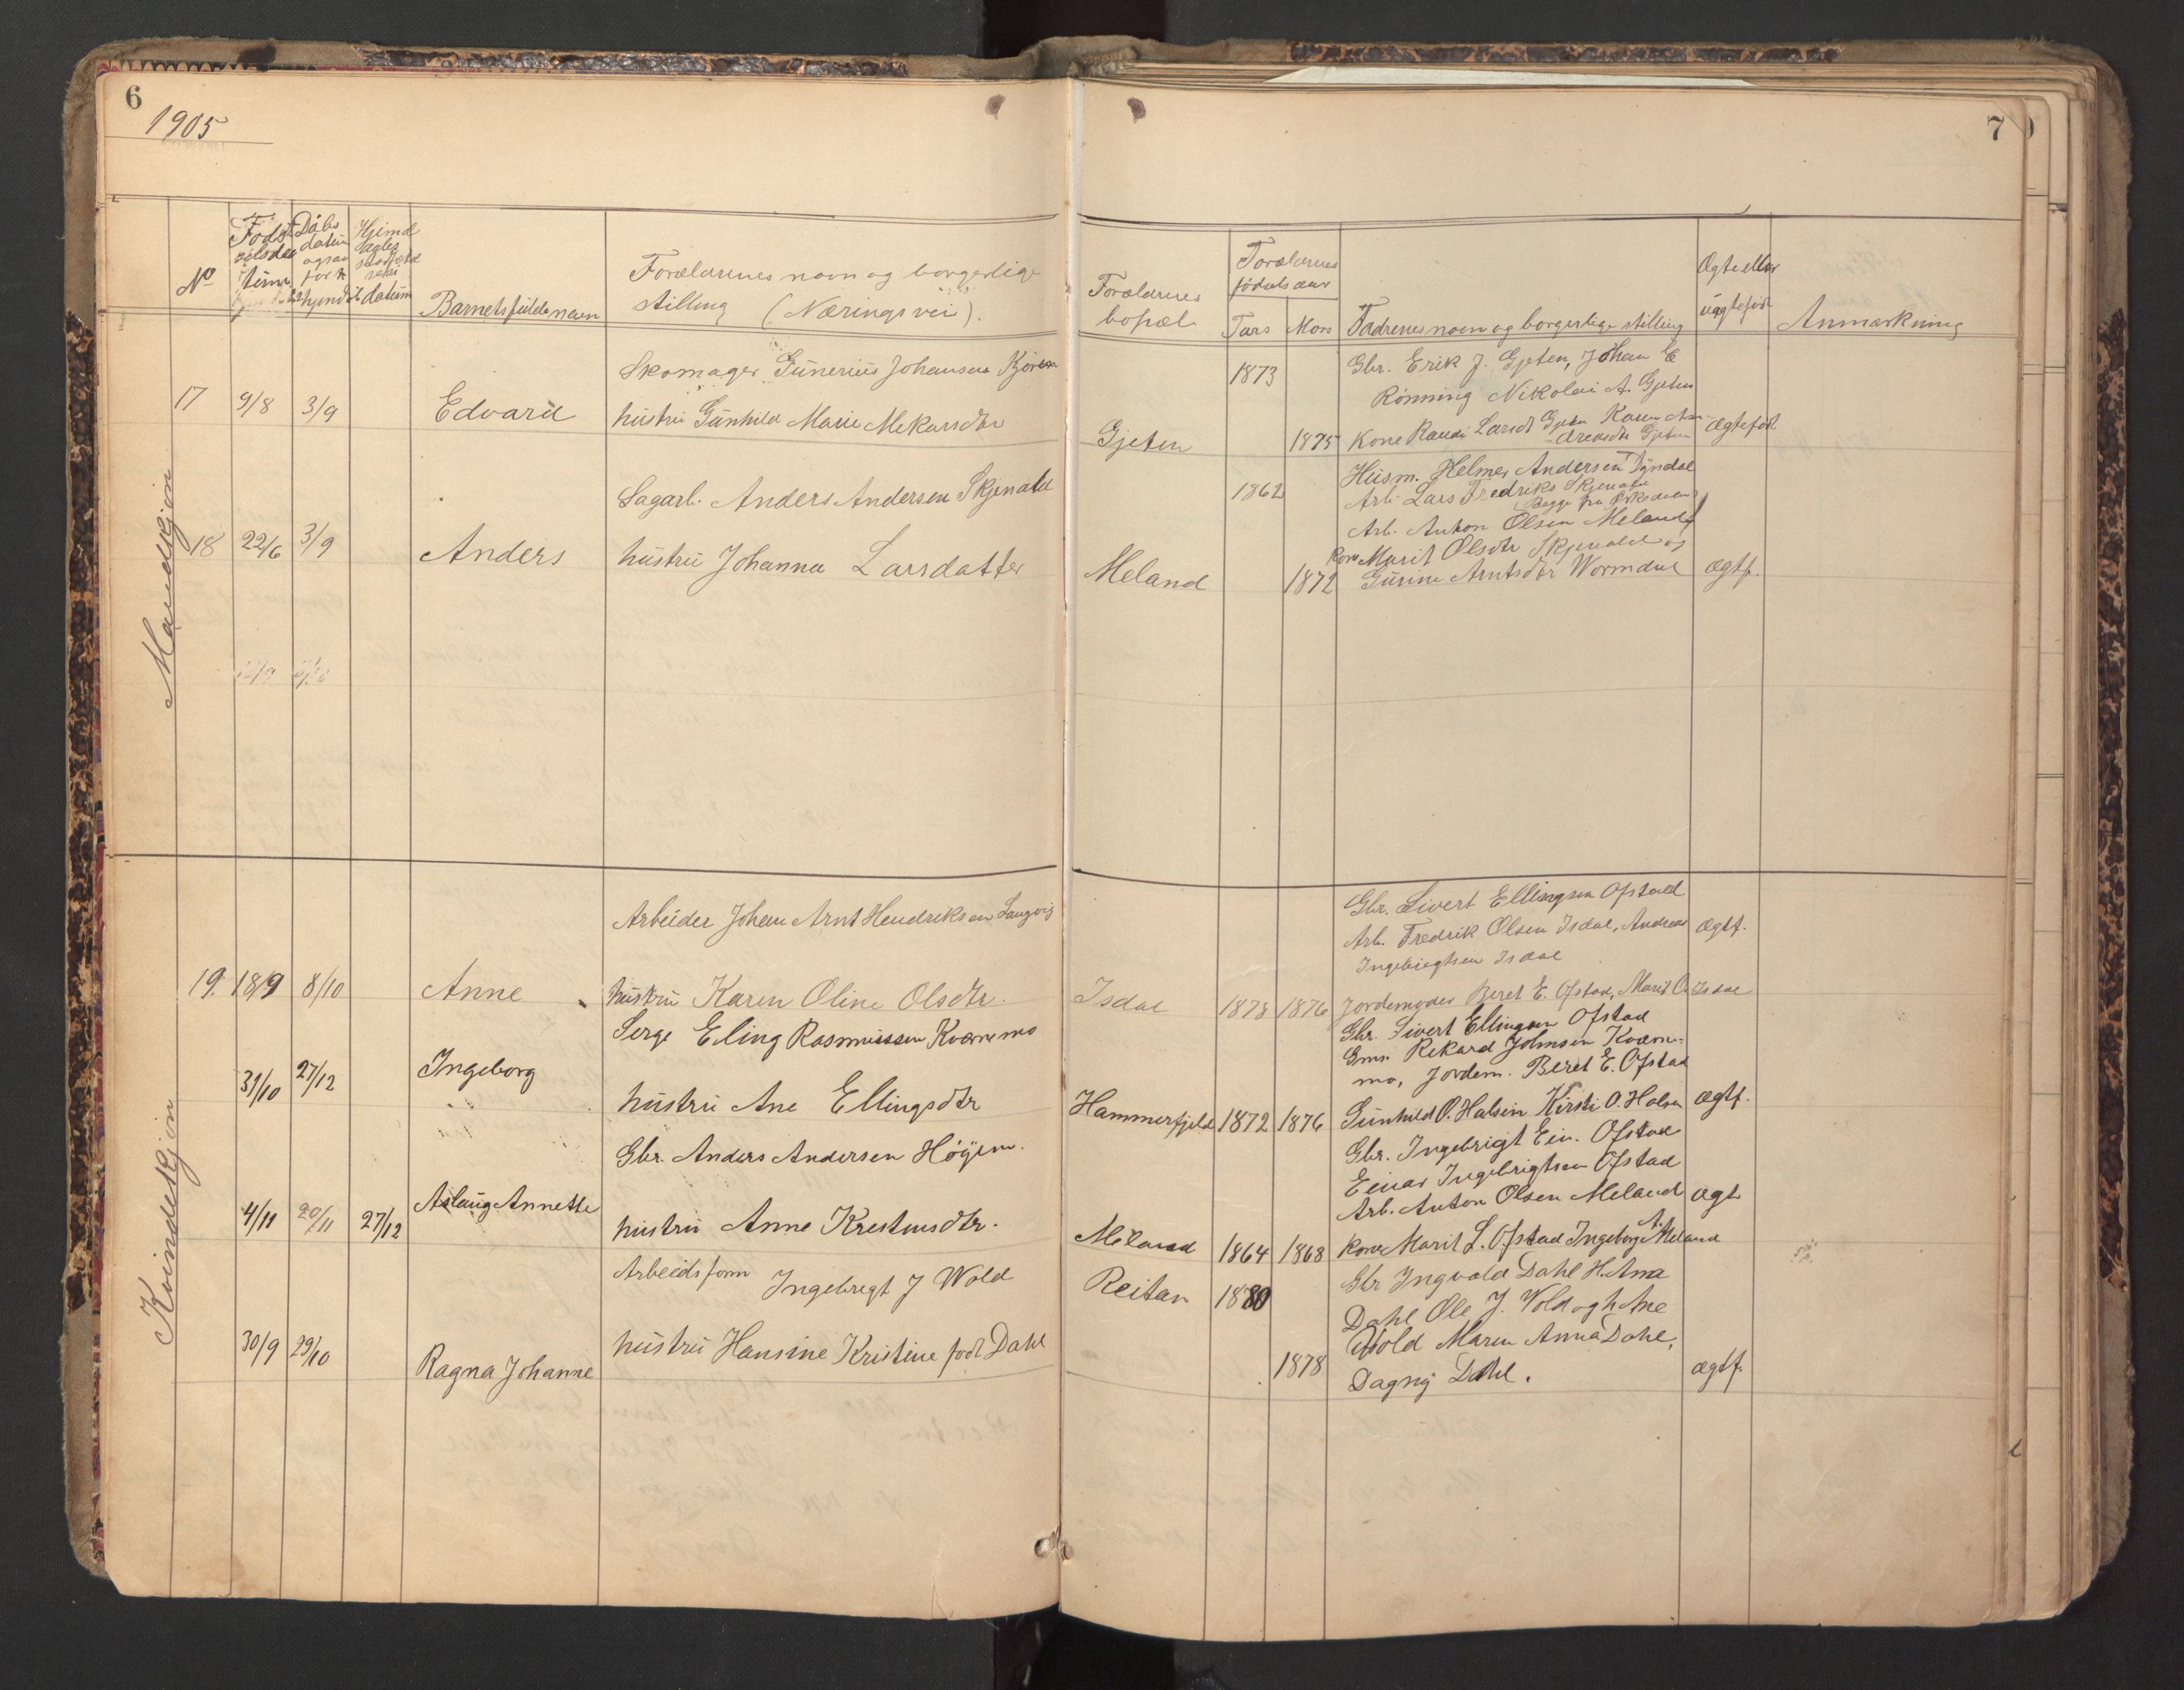 6
1905
No
Barnets fulde navn
Forældrenes navn og borgerlige
stilling (Næringsvei).
Mandkjøn
Skomager Gunerius Johansen Kjören
17 9/8 3/9 Edvard hustru Gunhild Marie Mekarsdtr
Sagarb. Anders Andersen Skjenald
18 22/6 3/9 Anders hustru Johanna Larsdatter
Kvindekjøn
Arbeider Johan Arnt Hendriksen Langvig
19. 18/9 8/10 Anne hustru Karen Oline Olsdtr.
Serge Eling Rasmussen Kværnmo
31/10 27/12 Ingeborg
hustru Ane Ellingsdtr
Gbr. Anders Andersen Höyem.
4/11 20/11 27/12 Aslaug Annette hustru Anne Krestensdtr.
Arbeidsform Ingebrigt J Wold
30/9 29/10 Ragna Johanne hustru Hansine Kristine född Dahl
7
Forældrenes bopæl
Forældrenes fødselsaar
Fars Mors
Fadrenes navn og borgerlige stilling
Ægte eller uægtefødt
Anmærkning
1873 Gbr. Erik J. Gjeten, Johan E
Rönning Nikolai A. Gjeten
Gjeten 1875 Kone Randi Larsdt Gjeten Karen An-
dreasdtr Gjeten ægtefødt
1862 Husm. Helmer Andersen Dyndal
Arb. Lars Fredriks Skjenald
Begge fra Orkedalen
Arb. Anton Olsen Meland
Kone Marit Olsdtr Skjenald og
Meland 1872 Gurine Arntsdtr Wormdal ægtf.
Gbr. Sivert Ellingsen Ofstad
Arb. Fredrik Olsen Isdal, Andreas ægtf.
Ingebrigtsen Isdal
Isdal 1878 1876 Jordemoder Beret E. Ofstad, Marit O. Isdal
Gbr. Sivert Ellingsen Ofstad
Gmr. Rekard Johnsen Kværn-
mo, Jordem. Beret E. Ofstad
Hammerfjeld 1872 1876 Gunhild O. Halsen Kirsti O. Halsen ægtf.
Gbr. Ingebrigt Ein. Ofstad
Einar Ingebrigtsen Ofstad
Arb. Anton Olsen Meland ægt
Meland 1864 1868 Kone Marit L. Ofstad Ingeborg A. Meland
Reitan 1880 Gbr Ingvald Dahl H. Anna
Dahl Ole J. Vold og h Ane
Wold Maren Anna Dahl,
1878 Dagny Dahl. ægtf.